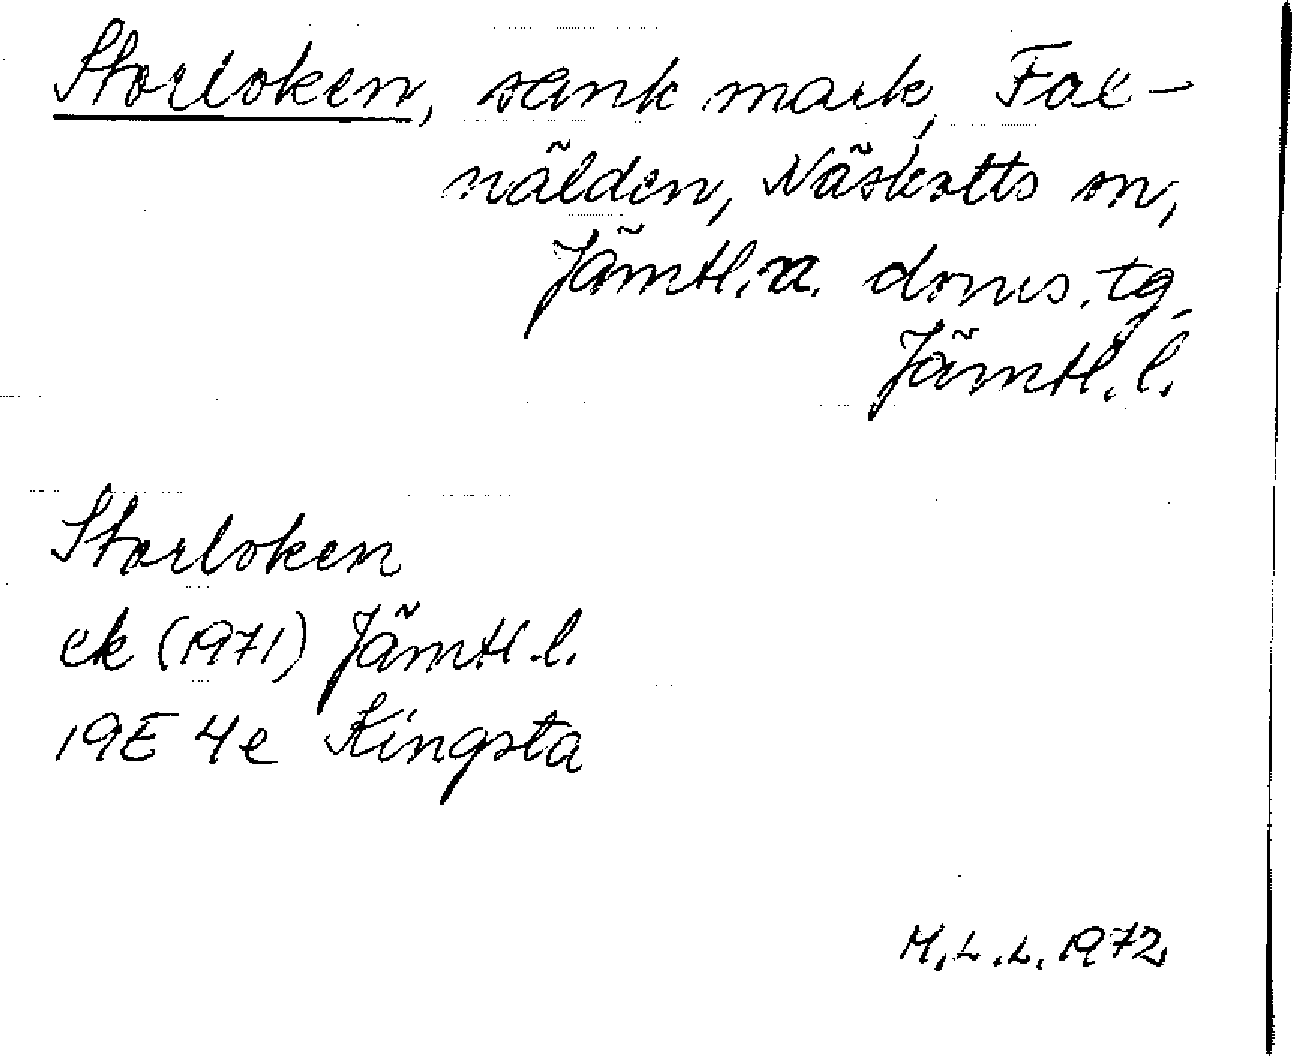 Storloken, sank mark, Fax-
nälden, Näskotts sn,
Jämtl. n. doms. tg,
Jämtl. l.
Storloken
ek (1971) Jämtl. l.
19E 4e Kingsta
M.L.L. 1972